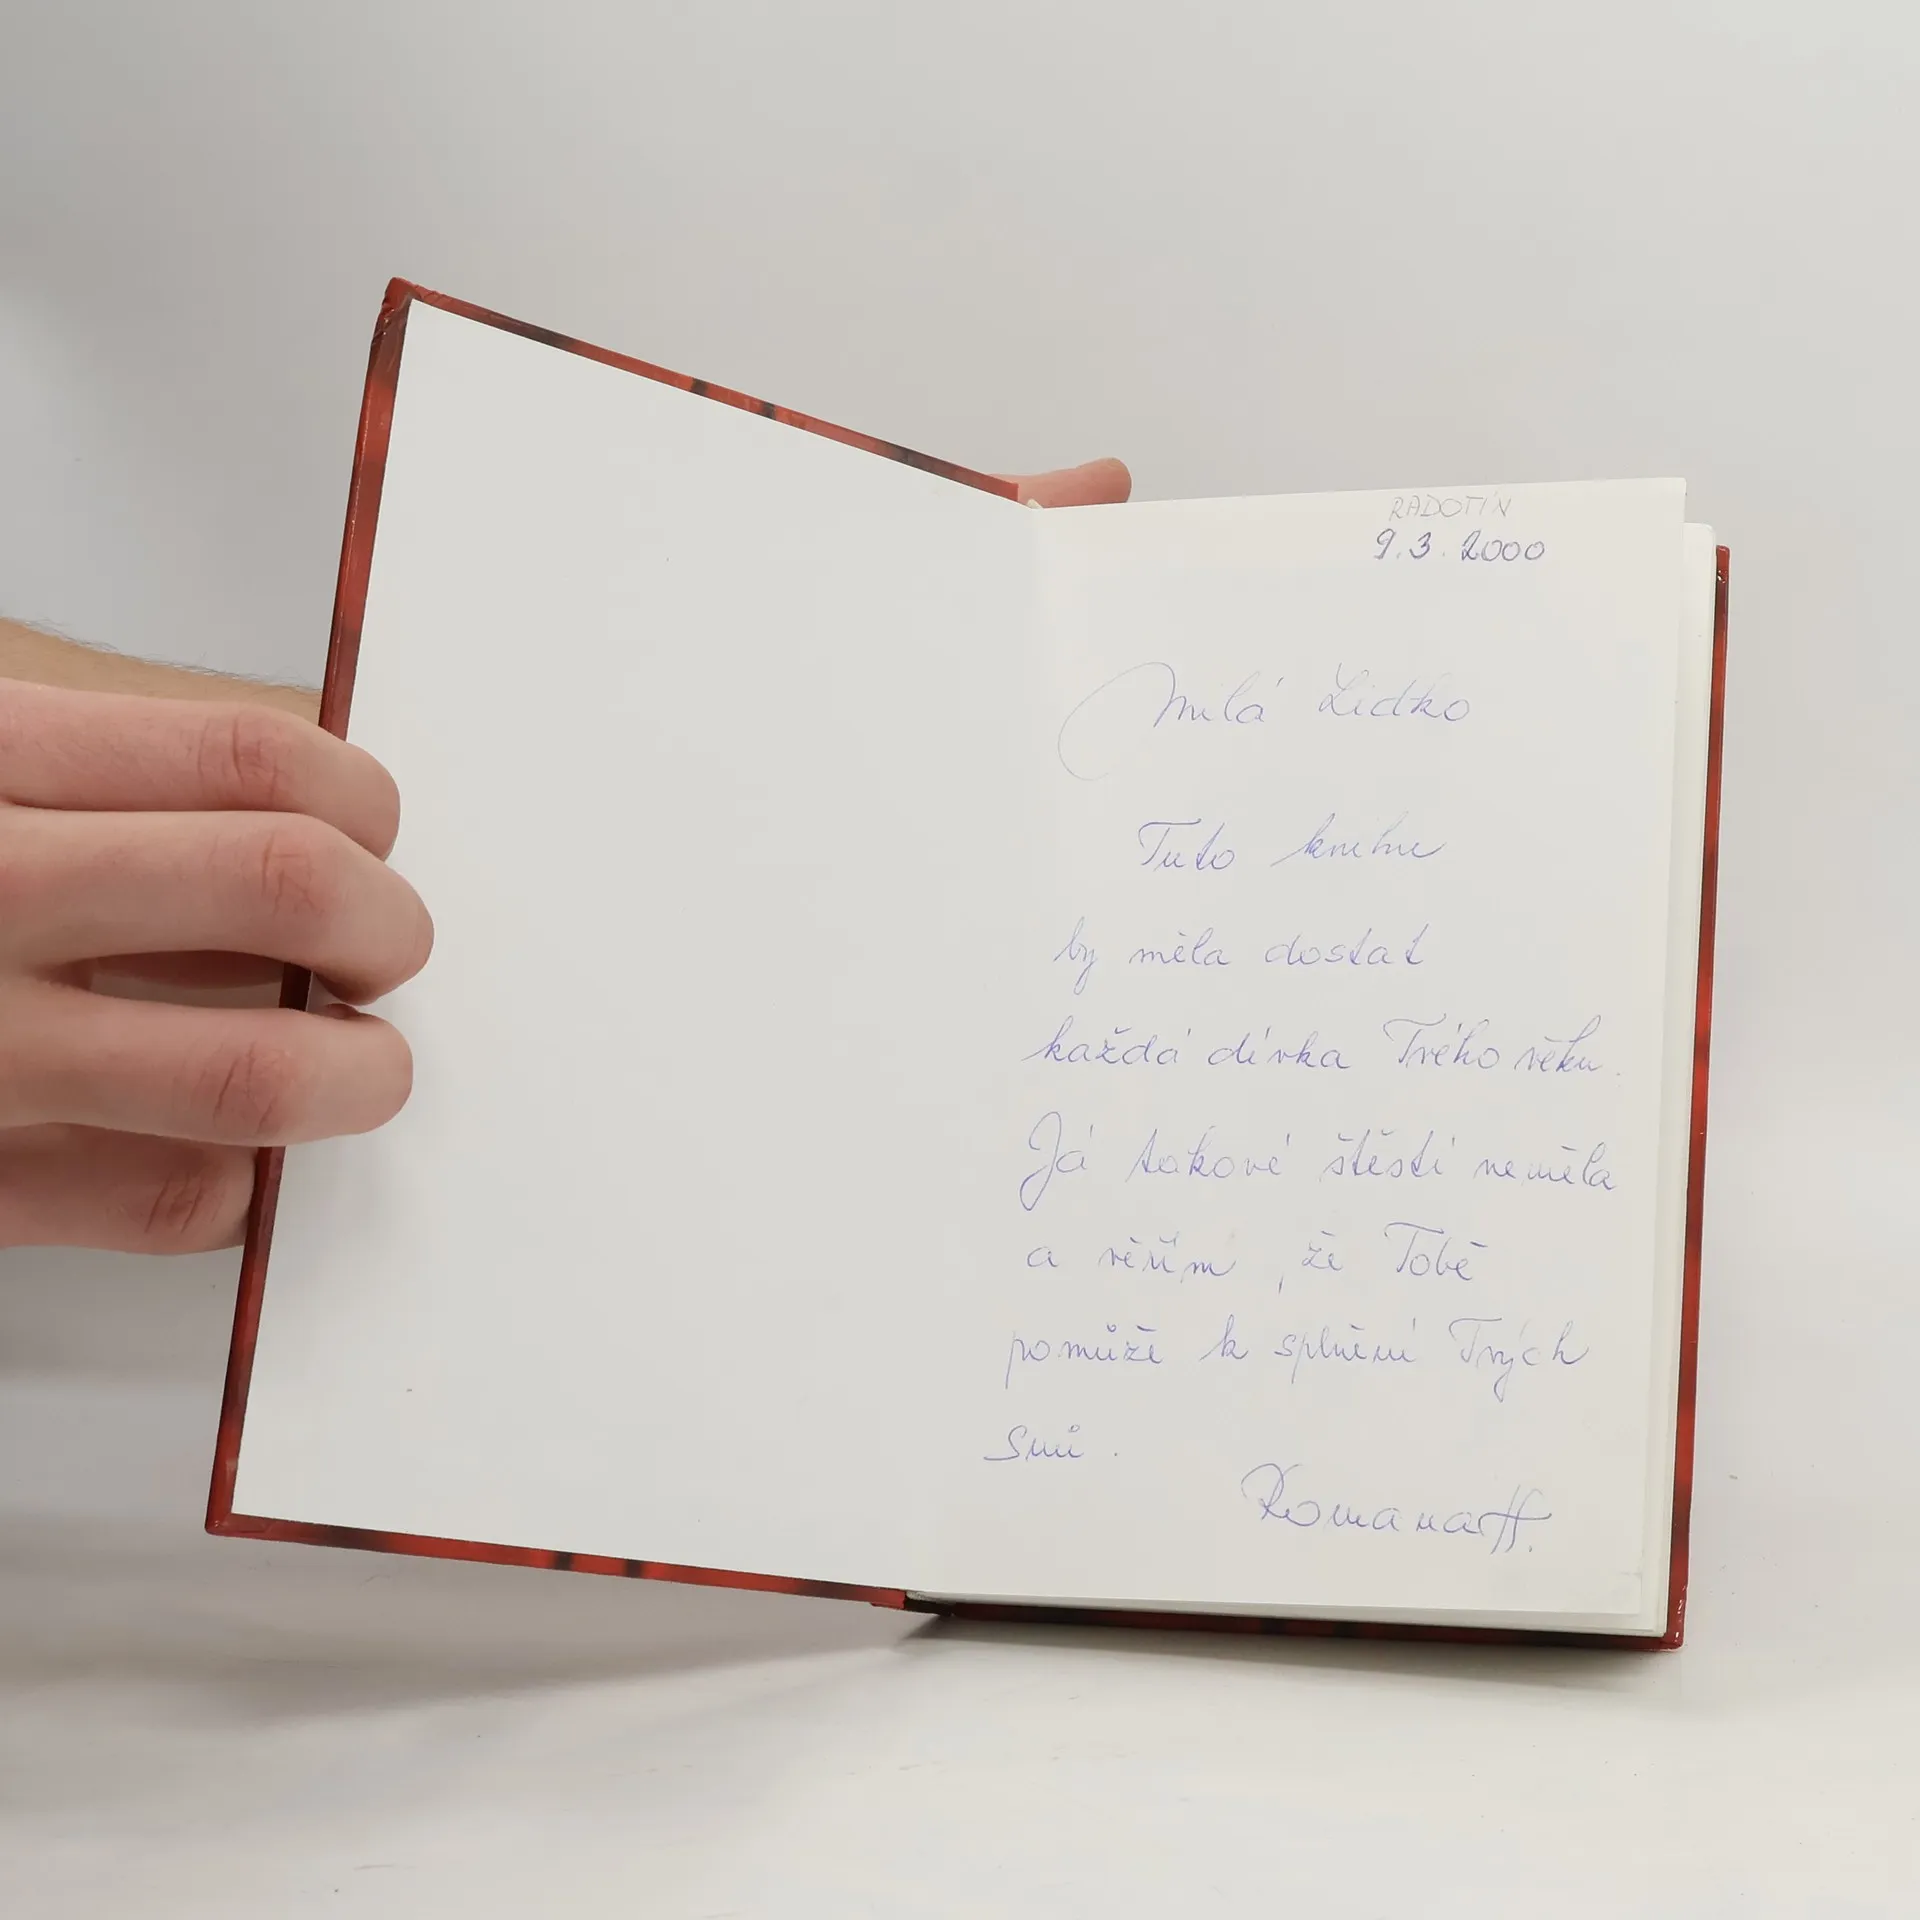 RADOTÍN
9.3.2000
Milá Lidko
Tuto knihu
by měla dostat
každá dívka Tvého věku.
Já takové štěstí neměla
a věřím, že Tobě
pomůže k splnění Tvých
snů.
Romana H.